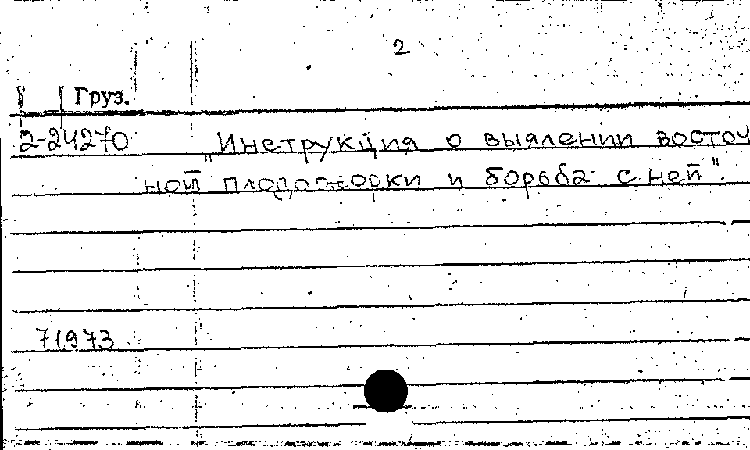 2
Груз.
2-24270 „Инструкция о выялении восточ
ной плодожорки и борьба с ней".
71973